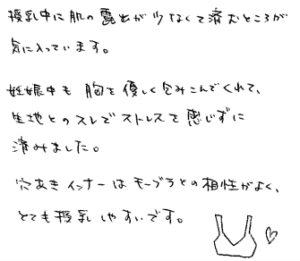 授乳中に肌の露出が少なくて済むところが
気に入っています。
妊娠中も胸を優しく包みこんでくれて、
生地とのスレでストレスを感じずに
済みました。
穴あきインナーはモーブラとの相性がよく、
とても授乳しやすいです。